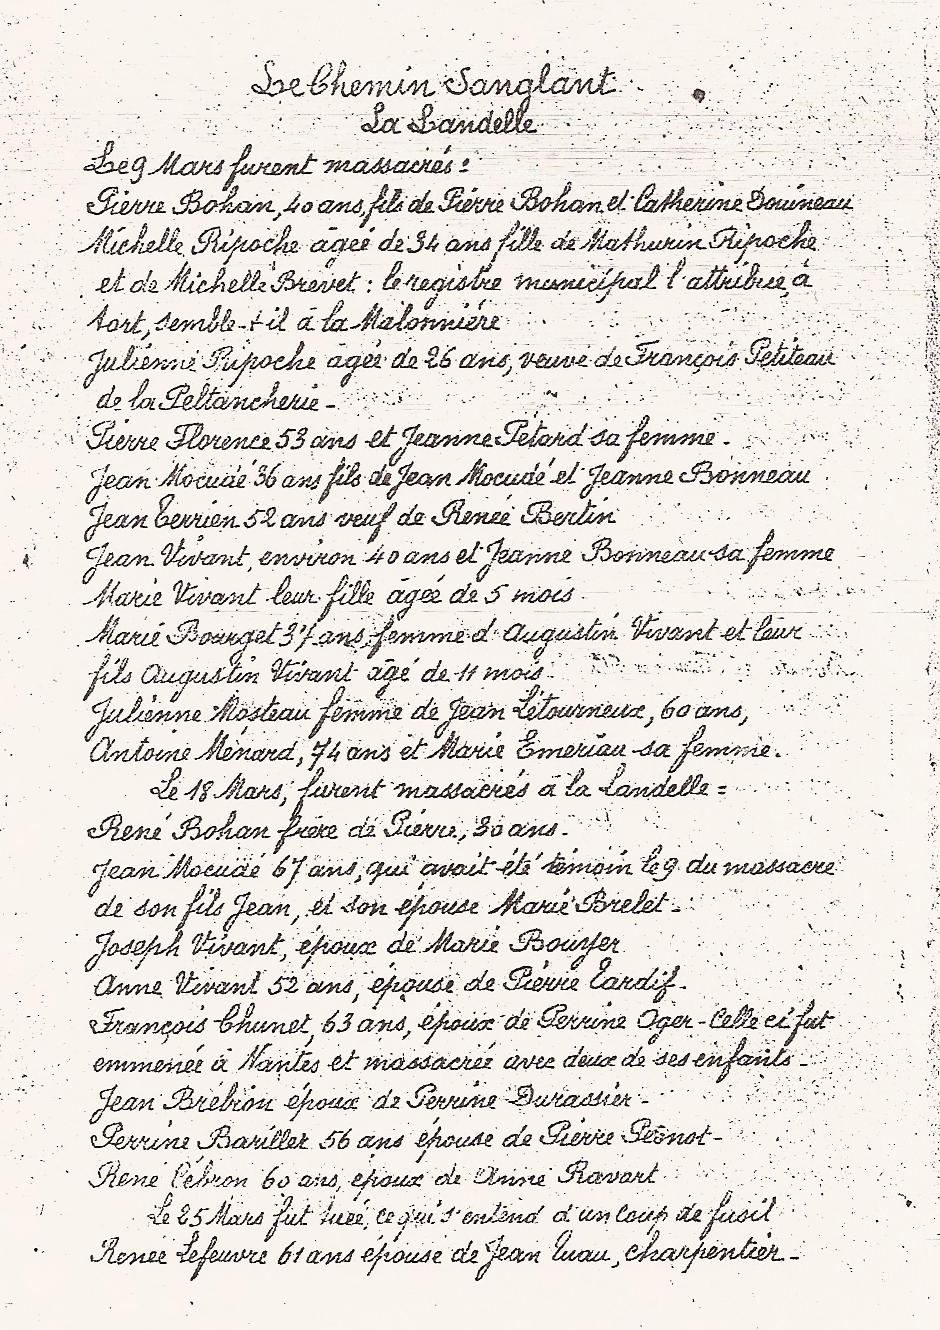 Le Chemin Sanglant
La Landelle
Le 9 Mars furent massacrés :
Pierre Bohan, 40 ans, fils de Pierre Bohan et Catherine Douineau
Michelle Ripoche âgée de 34 ans fille de Mathurin Ripoche
et de Michelle Brevet : le registre municipal l'attribue à
tort, semble-t-il à la Malonnière
Julienne Ripoche âgée de 26 ans, veuve de François Petiteau
de la Peltancherie -
Pierre Florence 53 ans et Jeanne Petard sa femme.
Jean Mocudé 36 ans fils de Jean Mocudé et Jeanne Bonneau
Jean Terrien 52 ans veuf de Renée Bertin
Jean Vivant, environ 40 ans et Jeanne Bonneau sa femme
Marie Vivant leur fille âgée de 5 mois.
Marie Bourget 37 ans, femme d'Augustin Vivant et leur
fils Augustin Vivant âgé de 11 mois.
Julienne Mosteau femme de Jean Létourneux, 60 ans,
Antoine Ménard, 74 ans et Marie Emeriau sa femme.
Le 18 Mars, furent massacrés à la Landelle :
René Bohan frère de Pierre, 30 ans.
Jean Mocudé 67 ans, qui avait été témoin le 9 du massacre
de son fils Jean, et son épouse Marie Brelet -
Joseph Vivant, époux de Marie Bouyer
Anne Vivant 52 ans, épouse de Pierre Tardif.
François Chunet, 63 ans, époux de Perrine Oger - Celle ci fut
emmenée à Nantes et massacrée avec deux de ses enfants -
Jean Brébion époux de Perrine Durassier -
Perrine Bariller 56 ans épouse de Pierre
René Cébron 60 ans, époux de Anne Ravart
Le 25 Mars fut tuée, ce qui s'entend d'un coup de fusil
Renée Lefeuvre 61 ans épouse de Jean Luau, charpentier -